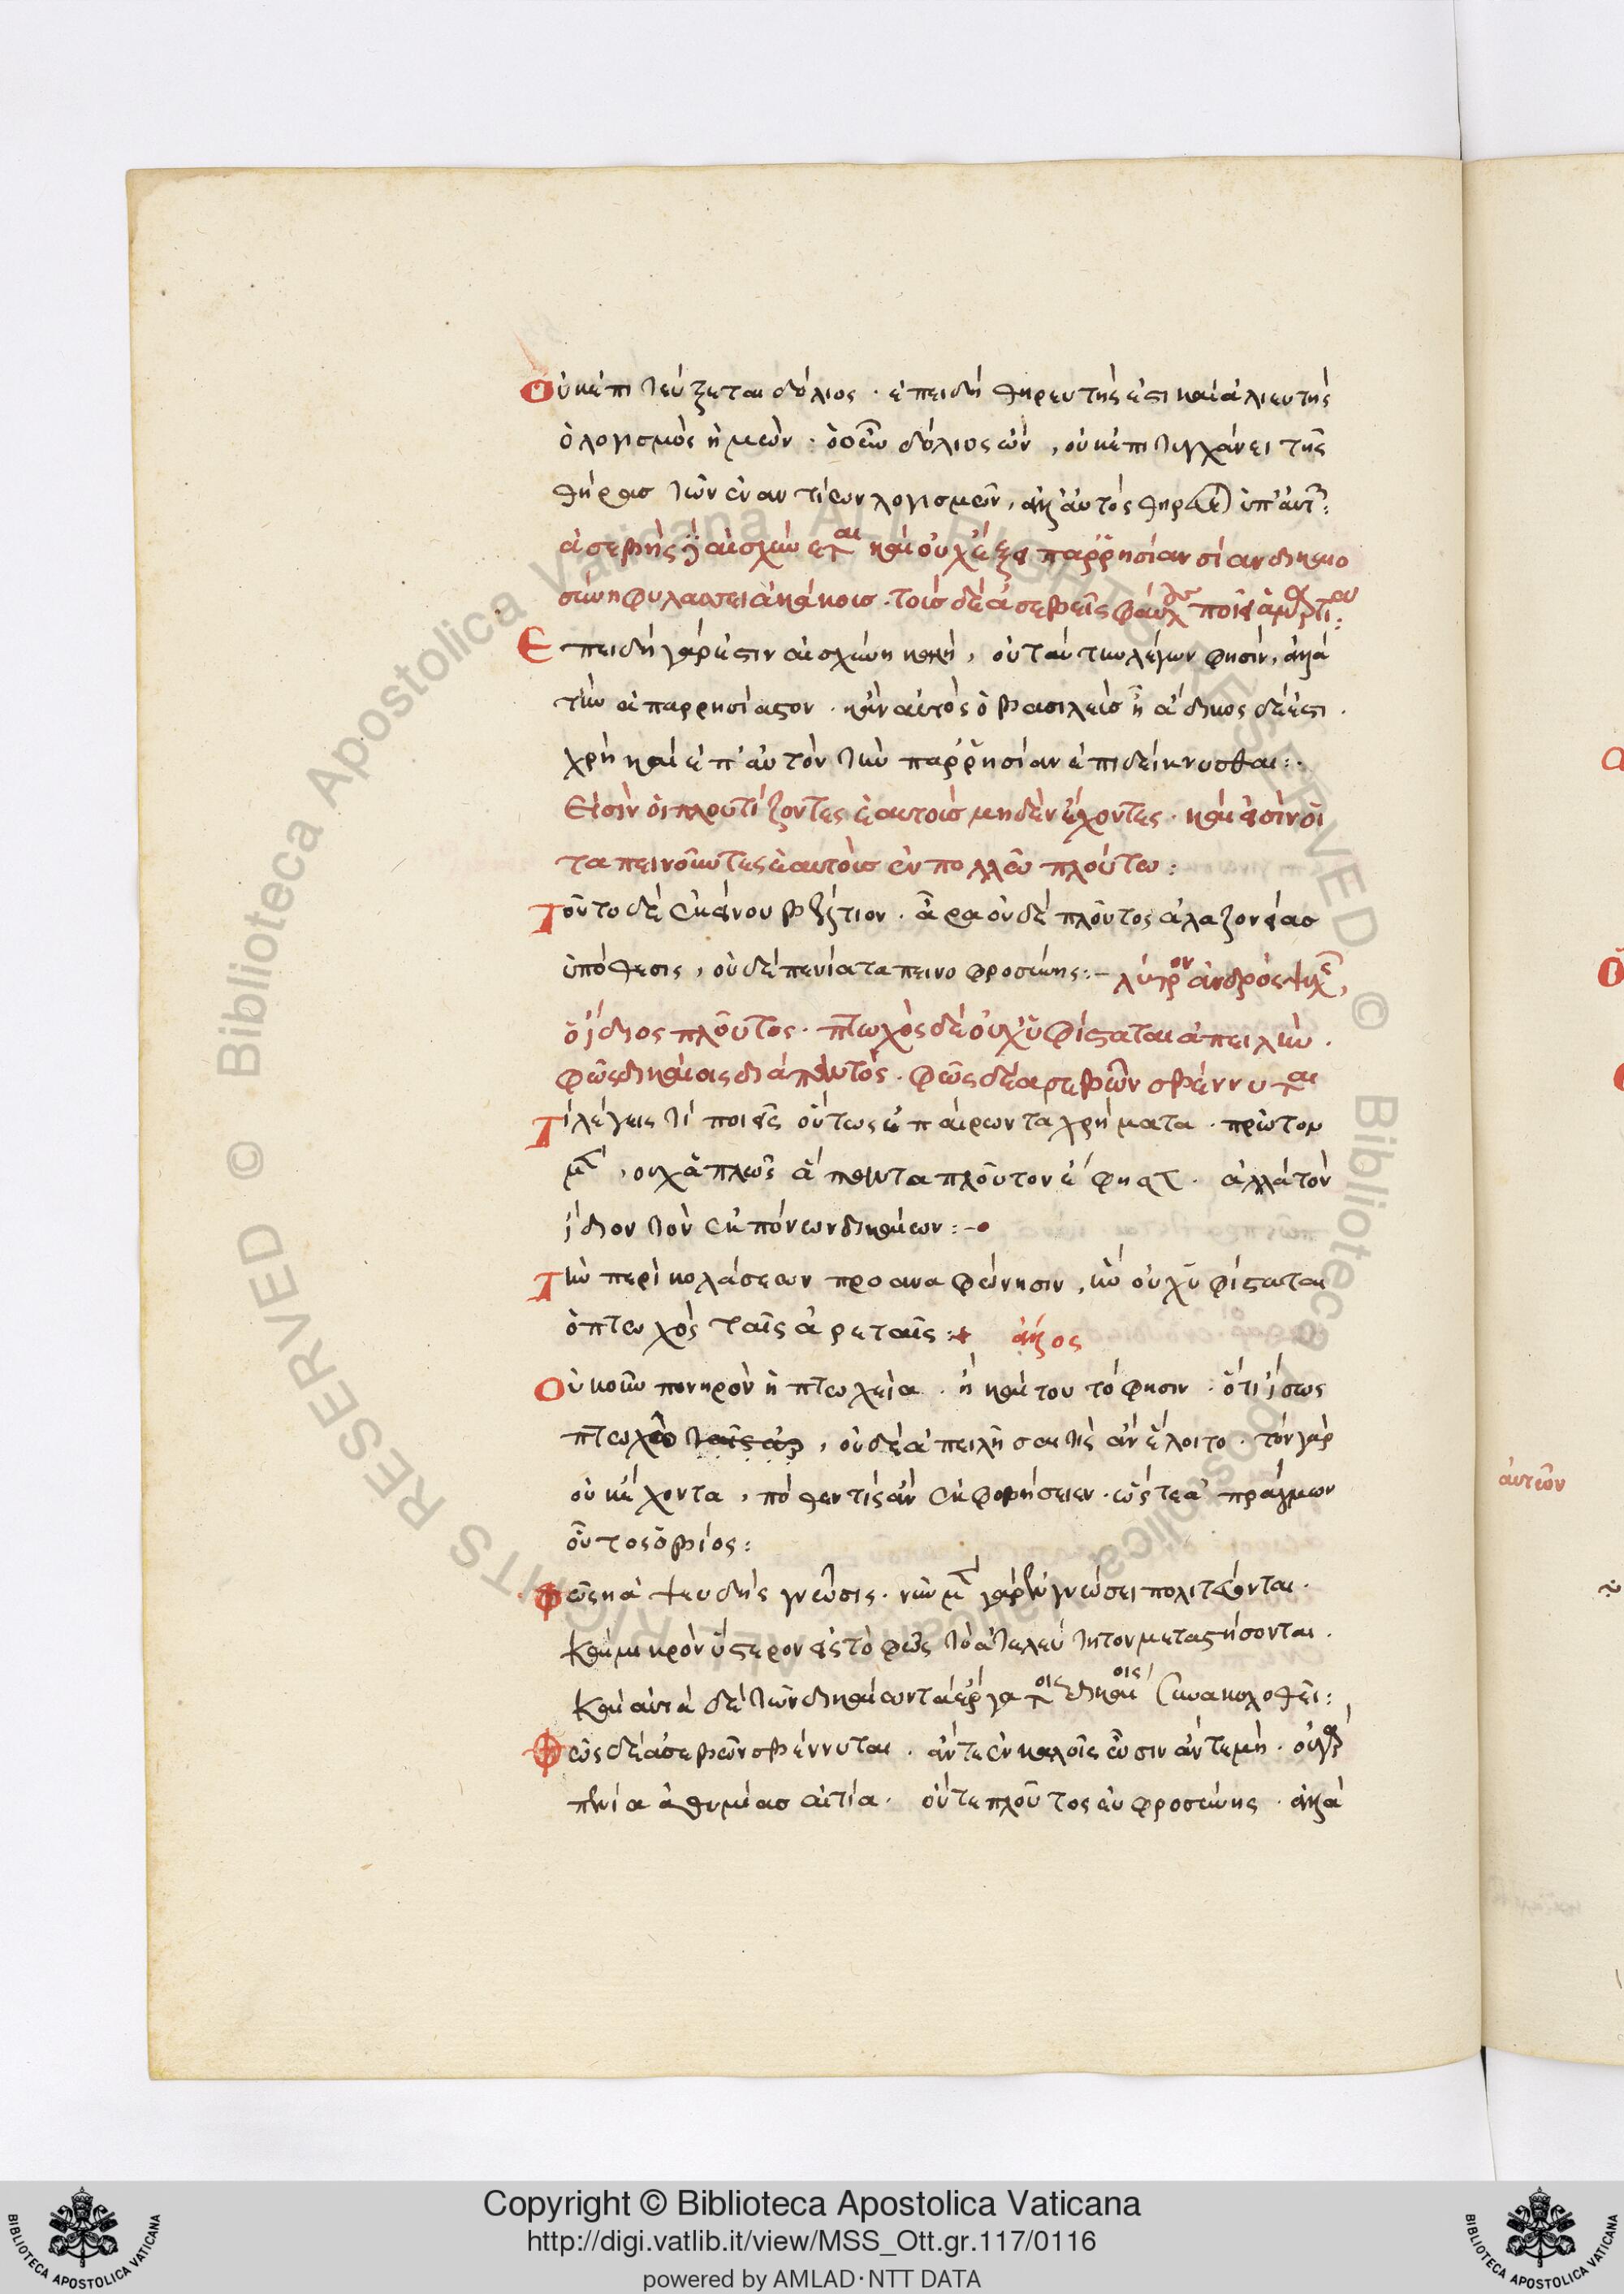 Οὐκ ἐπιτεύξεται δόλιος · ἐπειδὴ θηρευτής ἐστι καὶ ἁλιευτὴς
ὁ λογισμὸς ἡμῶν · δόλιος ὤν, οὐκ ἐπιτυγχάνει τῆς
θήρας τῶν ἐναντίων λογισμῶν, ἀλλ' αὐτὸς ὑπ' αὐτῶν:
ἀσεβὴς δὲ αἰσχύνεται καὶ οὐχ ἕξει παρρησίαν δικαιο
σύνη φυλάσσει ἀκάκους · τοὺς δὲ ἀσεβεῖς φαύλους ποιεῖ ἁμαρτία:
Ἐπειδὴ γάρ ἐστιν αἰσχύνη καλή, οὐ ταύτην λέγων φησίν, ἀλλὰ
τὴν ἀπαρρησίαστον · κἂν αὐτὸς ὁ βασιλεὺς ᾖ ἄδικος δέ ἐστι ·
χρὴ καὶ ἐπ' αὐτὸν τὴν παρρησίαν ἐπιδείκνυσθαι:
Εἰσὶν οἱ πλουτίζοντες ἑαυτοὺς μηδὲν ἔχοντες · καὶ εἰσὶν οἱ
ταπεινοῦντες ἑαυτοὺς ἐν πολλῷ πλούτω:
Τοῦτο δὲ ἐκείνου βέλτιον · ἆρα οὐδὲ πλοῦτος ἀλαζονείας
ὑπόθεσις, οὐδὲ πενία ταπεινοφροσύνης:– λύτρον ἀνδρὸς ψυχῆς,
ὁ ἴδιος πλοῦτος · πτωχὸς δὲ οὐχ ὑφίσταται ἀπειλήν ·
φῶς δικαίοις διὰ παντός · φῶς δὲ ἀσεβῶν σβέννυται
Τί λέγεις τί ποιεῖς οὕτως ἐπαίρων τὰ χρήματα · πρῶτον
μὲν, οὐχ ἁπλῶς ἅπαντα πλοῦτον ἔφησε · ἀλλὰ τὸν
ἴδιον τὸν ἐκ πόνων δικαίων:–
Τὴν περὶ κολάσεων προαναφώνησιν, ἣν οὐχ ὑφίσταται
ὁ πτωχὸς ταῖς ἀρεταῖς: ἄλλος
Οὐκοῦν πονηρὸν ἡ πτωχεία · ἢ καὶ τοῦτό φησιν · ὅτι ἴσως
πτωχῷ ταῖς ἀρ, οὐδὲ ἀπειλῆσαι τὶς ἂν ἕλοιτο · τὸν γὰρ
οὐκ ἔχοντα, πόθεν τίς ἂν ἐκφοβήσειεν · ὥστε ἀπράγμων
οὗτος ὁ βίος:
Φῶς ἡ ἀψευδὴς γνῶσις · νῦν μὲν γὰρ ἐν γνώσει πολιτεύονται ·
Καὶ μικρὸν ὕστερον εἰς τὸ φῶς τὸ ἀτελεύτητον μεταστήσονται ·
Καὶ αὐτὰ δὲ τῶν δικαίων τὰ ἔργα τοῖς δικαίοις συνακολουθεῖ:
Φῶς δὲ ἀσεβῶν σβέννυται · ἄν τε ἐν καλοῖς ὦσιν ἄν τε μή · οὐ γὰρ
πενία ἀθυμίας αἰτία · οὔτε πλοῦτος εὐφροσύνης · ἀλλὰ
αὐτῶν
Copyright © Biblioteca Apostolica Vaticana
http://digi.vatlib.it/view/MSS_Ott.gr.117/0116
powered by AMLAD·NTT DATA